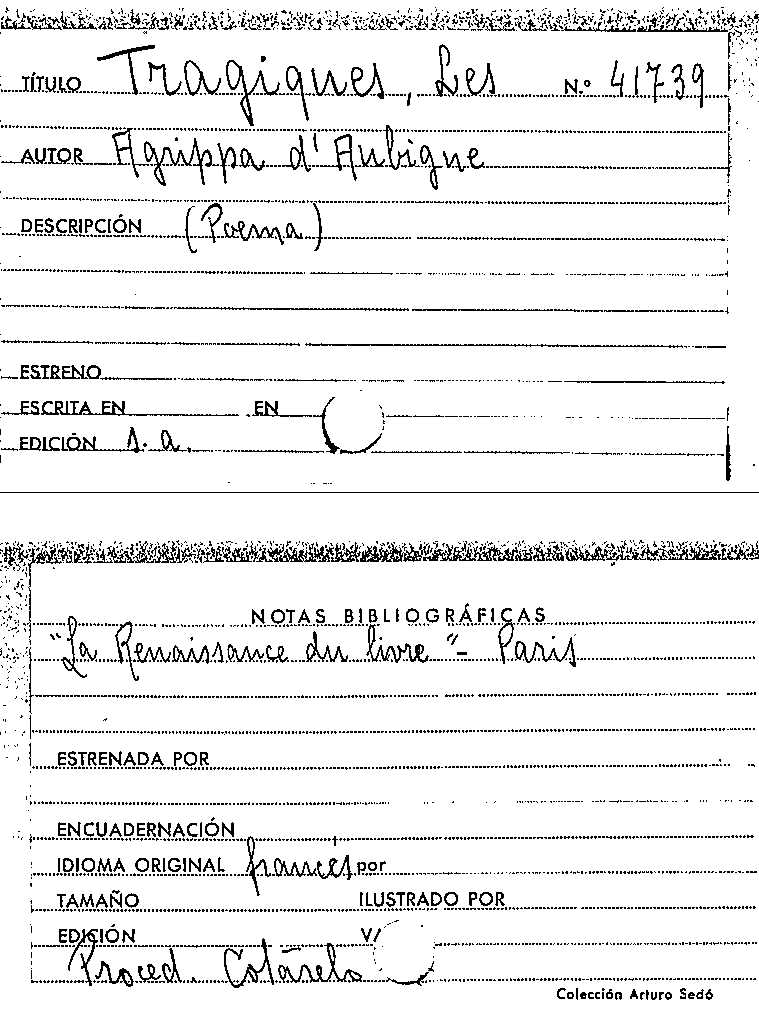 TÍTULO Tragiques, Les N.º 41739
AUTOR Agrippa d'Aubigne
DESCRIPCIÓN (Poema)
ESTRENO
ESCRITA EN EN
EDICIÓN s. a.
NOTAS BIBLIOGRÁFICAS
"La Renaissance du livre" - Paris
ESTRENADA POR
ENCUADERNACIÓN
IDIOMA ORIGINAL francés por
TAMAÑO ILUSTRADO POR
EDICIÓN V/
Proced. Cotarelo
Colección Arturo Sedó